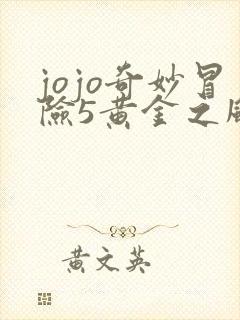 jojo奇妙冒
險5黃金之風
黃文英